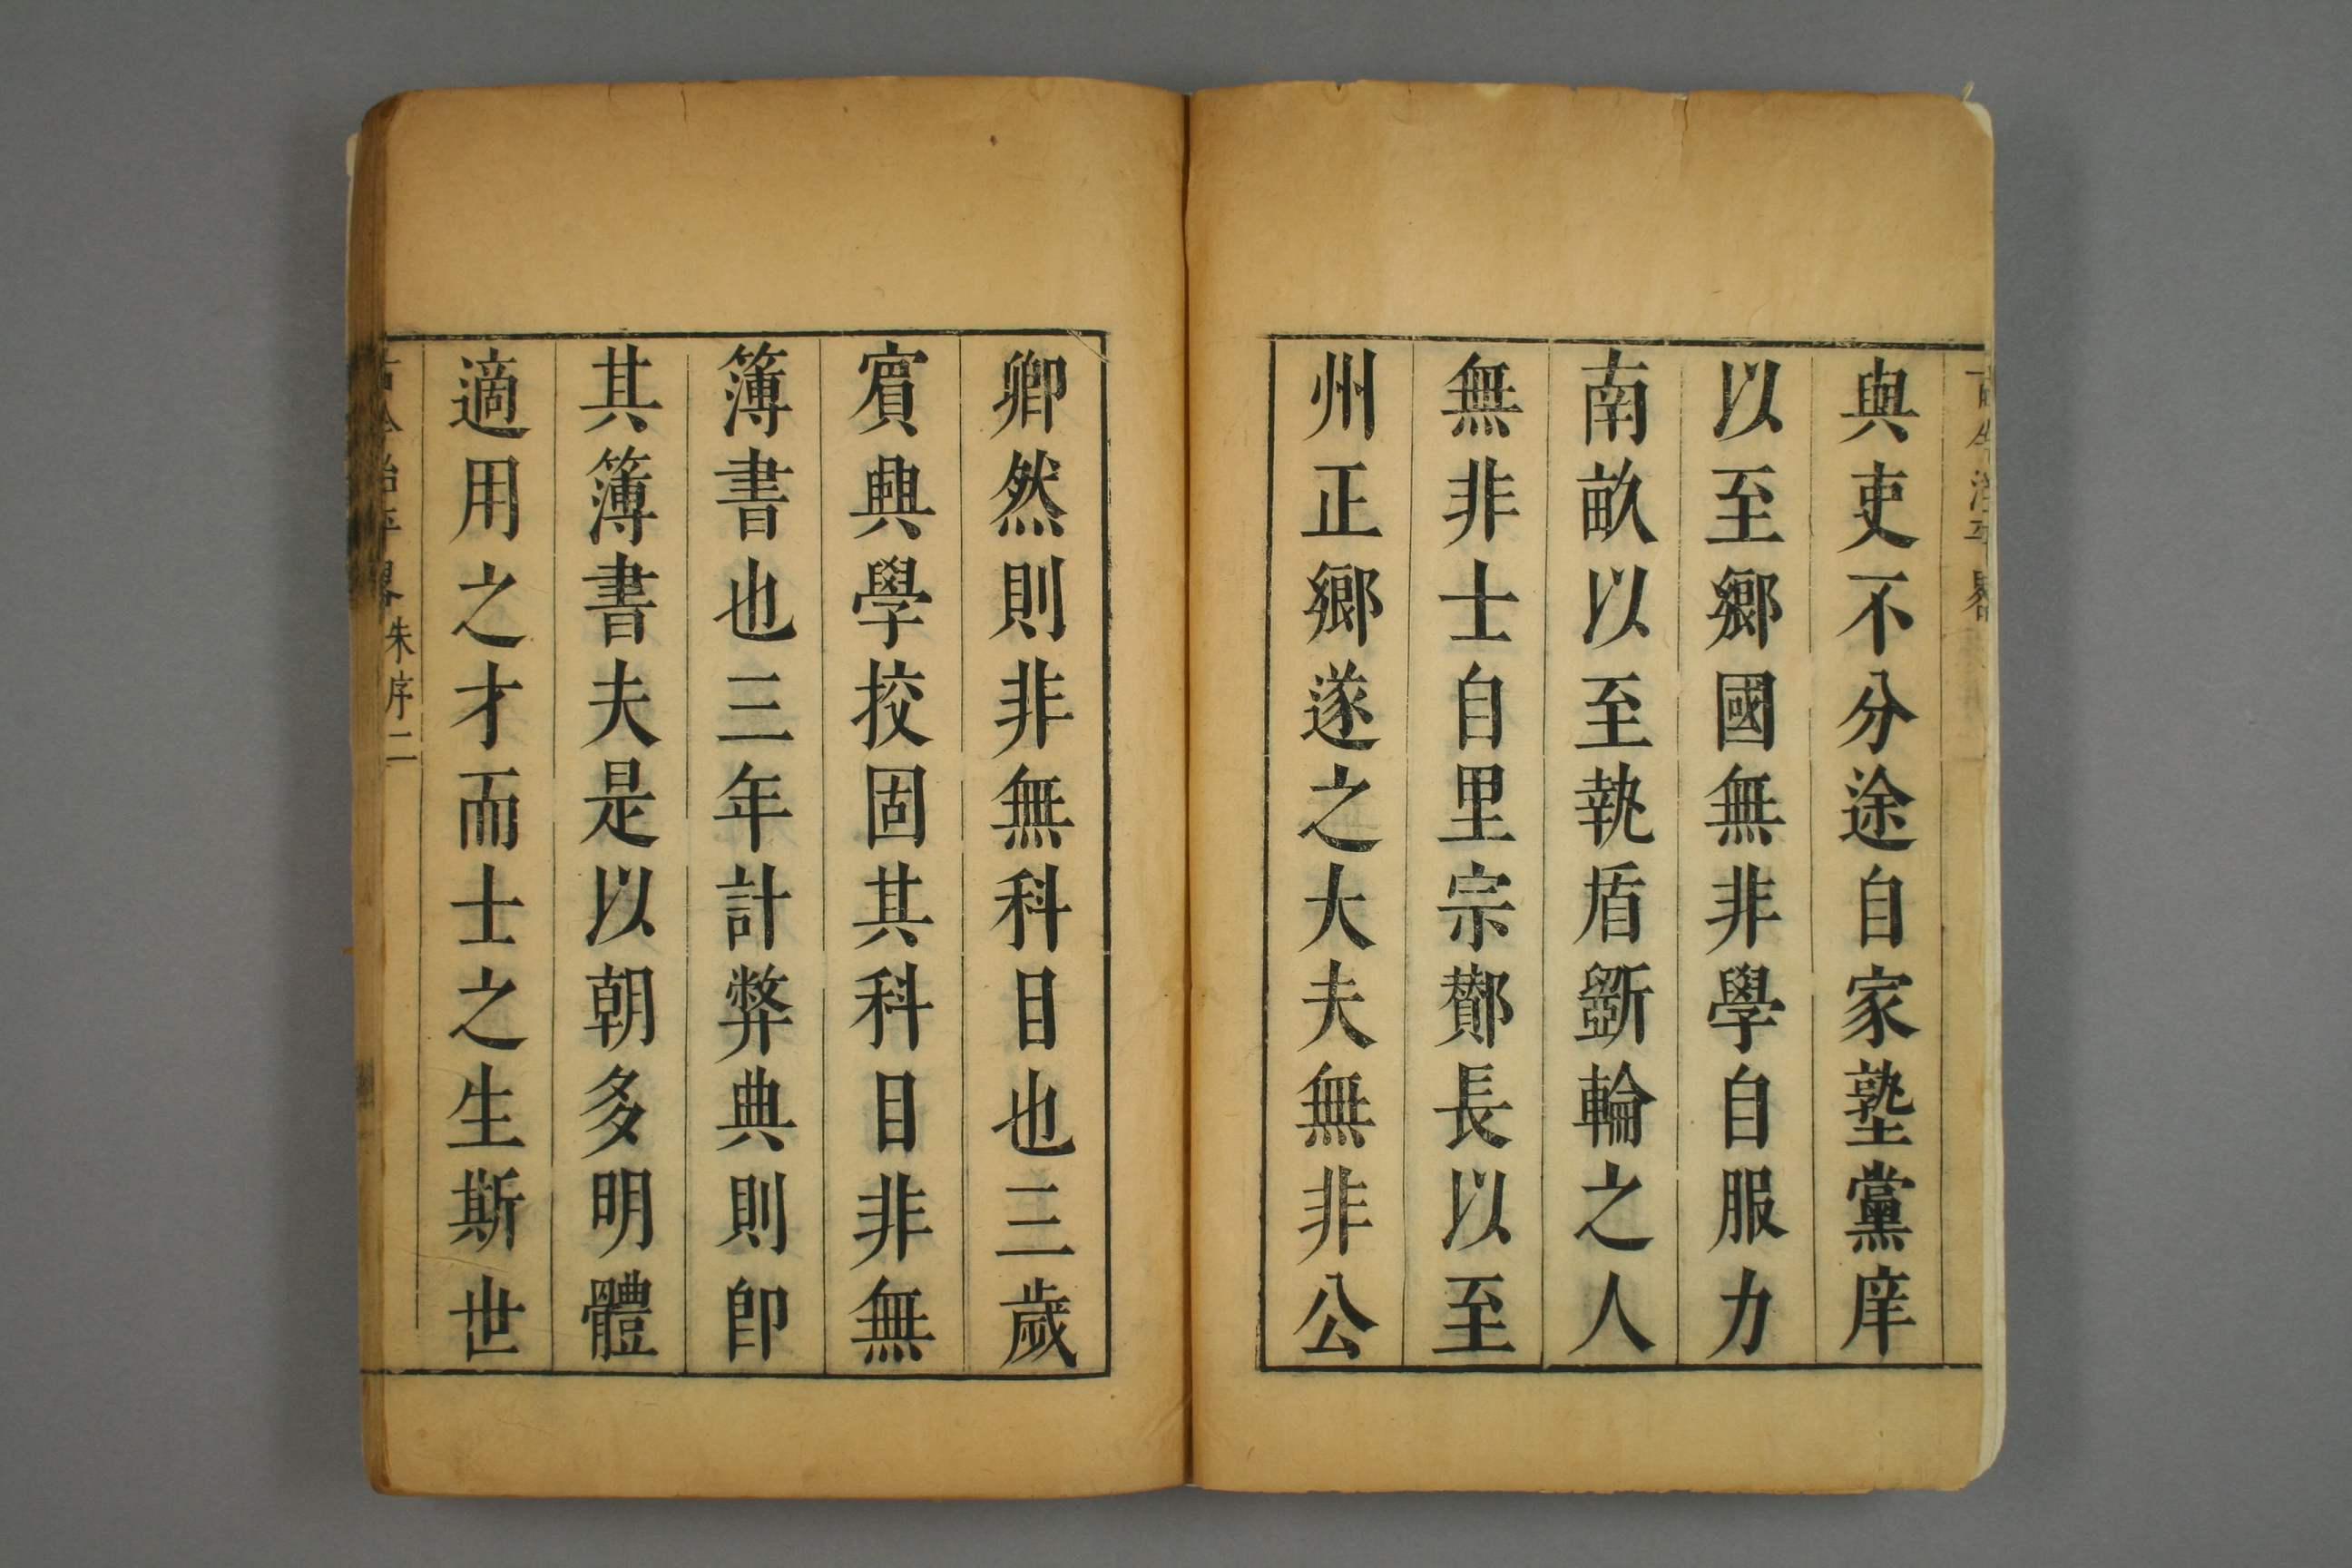 古今治平畧
與吏不分途自家塾黨庠
以至鄉國無非學自服力
南畝以至執盾斵輪之人
無非士自里宗酇長以至
州正鄉遂之大夫無非公
卿然則非無科目也三歲
賔興學挍固其科目非無
簿書也三年計弊典則卽
其簿書夫是以朝多明體
適用之才而士之生斯世
古今治平畧 朱序二